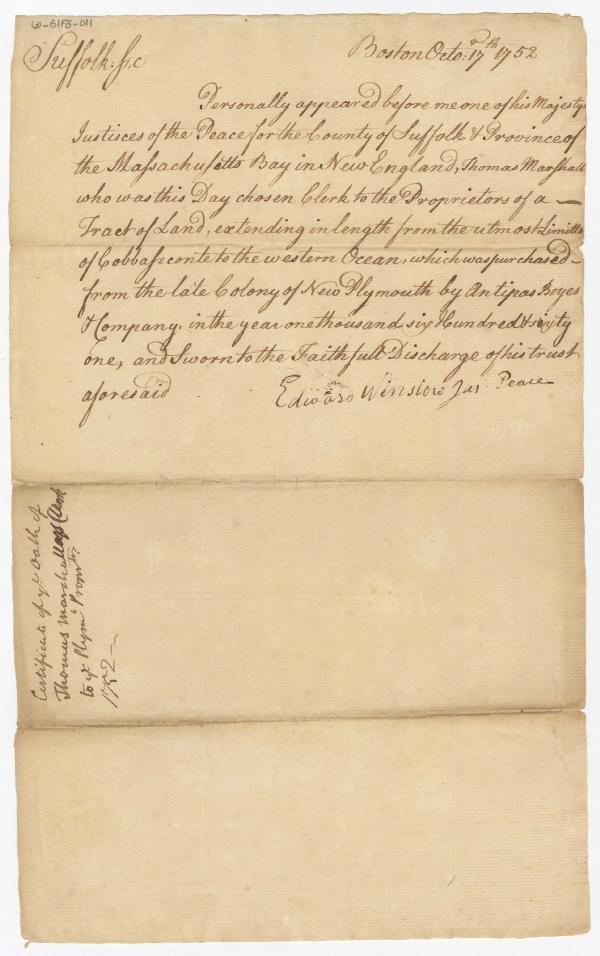 6-BIF8-011
Suffolk: ss
Boston Octor. 17th 1752
Personally appeared before me one of his Majestys
Justisces of the Peace for the County of Suffolk & Province of
the Massachusetts Bay in New England, Thomas Marshall
who was this Day chosen Clerk to the Proprietors of a
Tract of Land, extending in length from the utmost Limitts
of Cobbasseconte to the western Ocean, which was purchased
from the late Colony of New Plymouth by Antipas Boyes
& Company. in the year one thousand six Hundred & sixty
one, and Sworn to the Faithfull Discharge of his trust
aforesaid
Edward Winslow Jus. Peace
Certificate of ye Oath of
Thomas Marshall as Clerk
to ye Plymo Proprs
1752